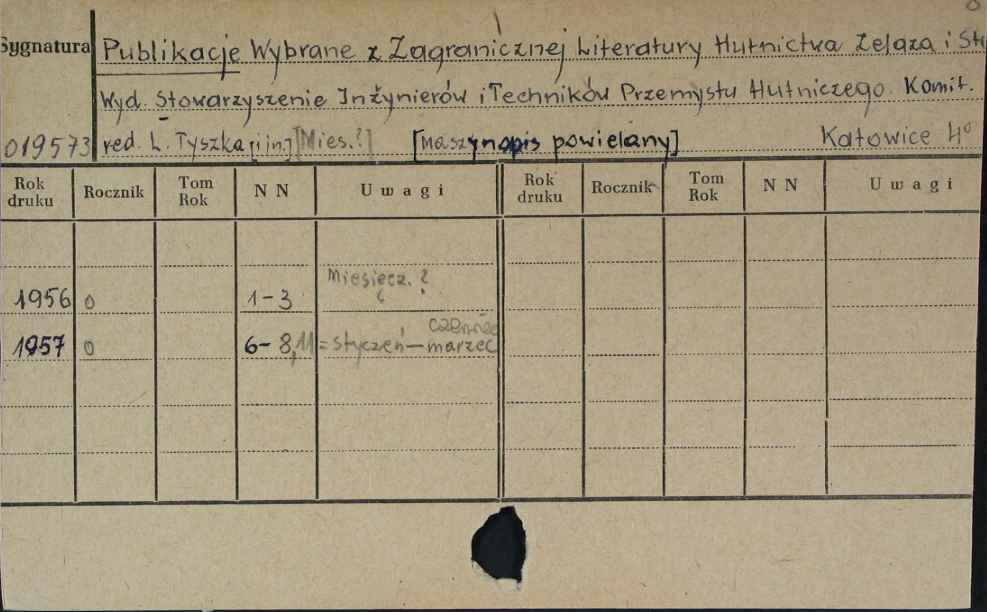 Sygnatura Publikacje Wybrane z Zagranicznej Literatury Hutnictwa Żelaza i
Wyd. Stowarzyszenie Inżynierów i Techników Przemysłu Hutniczego. Komit.
019573 red. L. Tyszka [i in.] [Mies.?] [Maszynopis powielany] Katowice 4°
Rok druku Rocznik Tom Rok N N Uwagi Rok druku Rocznik Tom Rok N N Uwagi
Miesięcz. ?
1956 0 1-3
czerwiec
1957 0 6-8,11 = styczeń - marzec